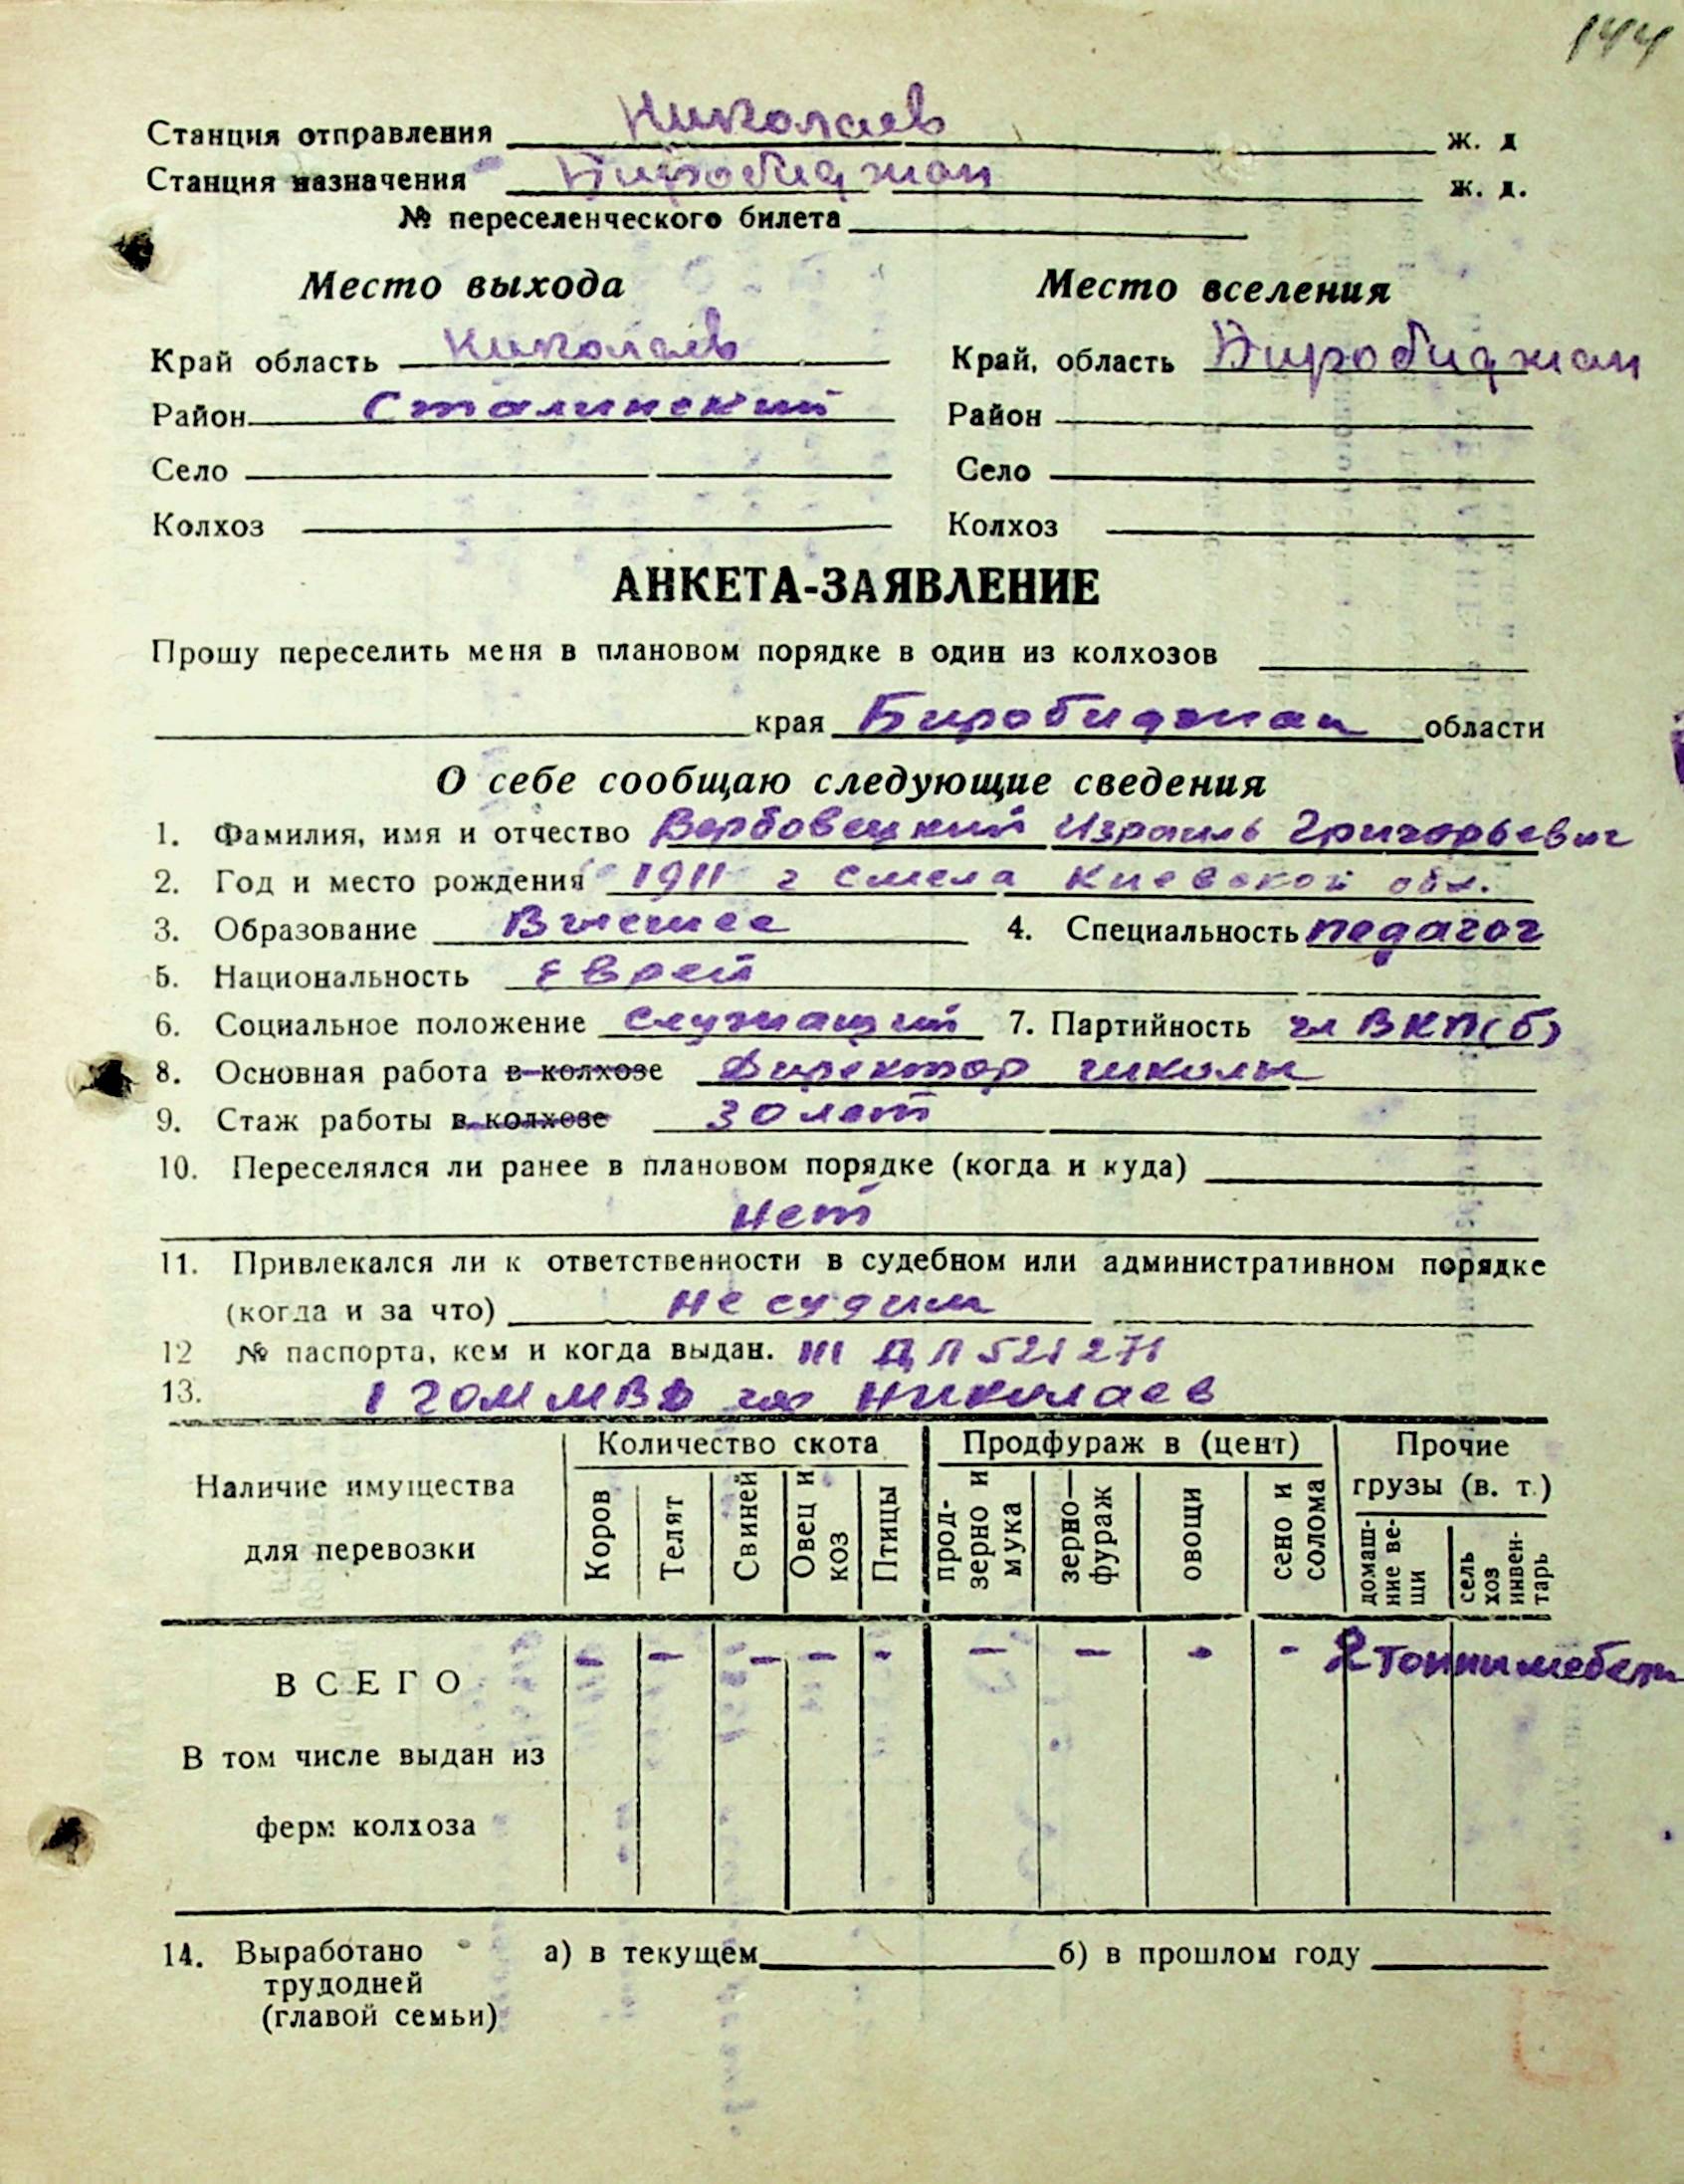 144
Станция отправления Николаев ж. д
Станция назначения Биробиджан ж. д.
№ переселенческого билета
Место выхода Место вселения
Край область Николаев Край, область Биробиджан
Район Сталинский Район
Село Село
Колхоз Колхоз
АНКЕТА-ЗАЯВЛЕНИЕ
Прошу переселить меня в плановом порядке в один из колхозов
края Биробиджан области
О себе сообщаю следующие сведения
1. Фамилия, имя и отчество Вербовецкий Израиль Григорьевич
2. Год и место рождения 1911 г Смела Киевской обл.
3. Образование Высшее 4. Специальность педагог
5. Национальность Еврей
6. Социальное положение служащий 7. Партийность чл ВКП(б)
8. Основная работа в колхозе Директор школы
9. Стаж работы в колхозе 30 лет
10. Переселялся ли ранее в плановом порядке (когда и куда)
Нет
11. Привлекался ли к ответственности в судебном или административном порядке
(когда и за что) Не судим
12 № паспорта, кем и когда выдан. III ДЛ 521271
13. 1 ГОМ МВД Николаев
Наличие имущества для перевозки
Количество скота
Продфураж в (цент)
Прочие грузы (в. т.)
Коров
Телят
Свиней
Овец и коз
Птицы
прод-зерно и мука
зерно—фураж
овощи
сено и солома
домаш-ние ве-щи
сель хоз инвен-тарь
ВСЕГО - - - - - - - - - 2 тонны мебели
В том числе выдан из
ферм колхоза
14. Выработано а) в текущем б) в прошлом году
трудодней
(главой семьи)